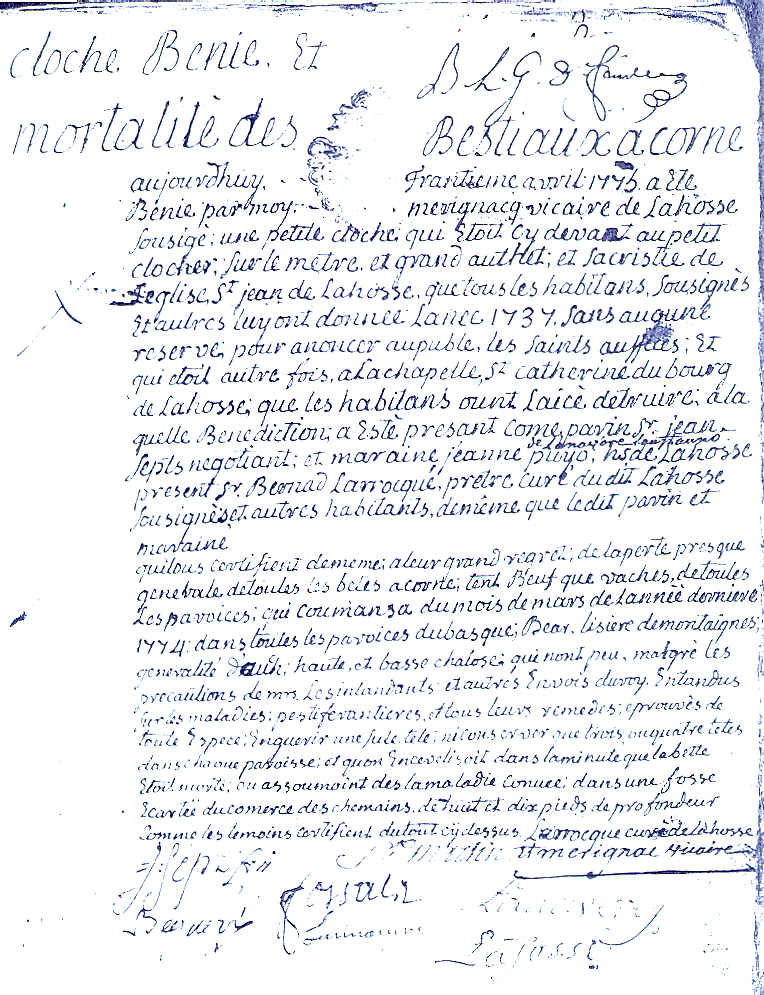 cloche Benie. Et
B L G
mortalité des Bestiaux à corne
aujourdhuy frantieme avril 1775. a Ete
Bénie par moy merignacq vicaire de Lahosse
sousigé; une petite cloche qui Etoit cy devant au petit
clocher, sur le metre. et grand authet; et sacristie de
Leglise St jean de Lahosse, que tous les habitans, sousignès
Et autres luy ont donnee Lanee 1737, sans augune
reserve; pour anoncer au puble, les saints auffices; Et
qui etoit autre fois, a La chapelle, St catherine du bourg
de Lahosse; que les habitans ount Laicè detruire; a la
quelle Benediction; a Estè presant come parin Sr. jean
de Lanavere
septs negotiant; et maraine jeanne puyo; hs de Lahosse
present sr. Bernad Larrocqué, pretre curé du dit Lahosse
sousignès et autres habitants, de même que le dit parin et
maraine
qui tous certifient de meme; a leur grand regret; de la perte presque
generale de toutes les betes a corne; tent Beuf que vaches, de toutes
Les paroices; qui coumansa du mois de mars de Lannèe derniere
1774: dans toutes les paroices du basque; Bear, lisiere de montaignes;
generalité d'auh; haute, et basse chalose; qui nont peu, malgrè les
precautions de mrs. Les intandants; et autres Envois du roy. Entandus
sur les maladies; pestiferantieres, et tous leurs remedes; eprouvès de
toute Espece; En guerir une sule tete; ni conserver que trois ou quatre tetes
dans chaque paroisse; et quon Encevelisoit dans la minute que la bette
Etoit morte; ou assoumoint des la maladie conuee; dans une fosse
Ecartée du comerce des chemains. de huit et dix pieds de profondeur
Comme les temoins certifient du tout cy dessus. Larrocque curé de Lahosse
martin merignac vicaire
J Septs
Lafosse